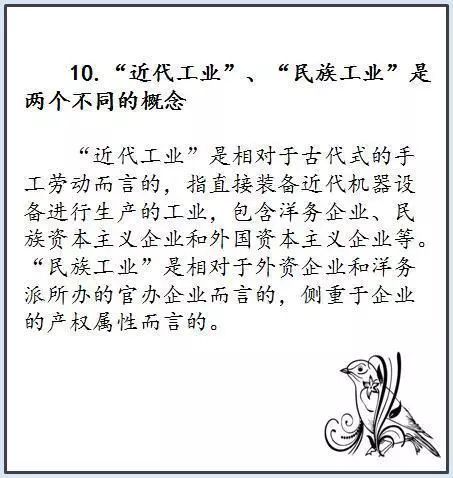 10.“近代工业”、“民族工业”是
两个不同的概念
“近代工业”是相对于古代式的手
工劳动而言的，指直接装备近代机器设
备进行生产的工业，包含洋务企业、民
族资本主义企业和外国资本主义企业等。
“民族工业”是相对于外资企业和洋务
派所办的官办企业而言的，侧重于企业
的产权属性而言的。